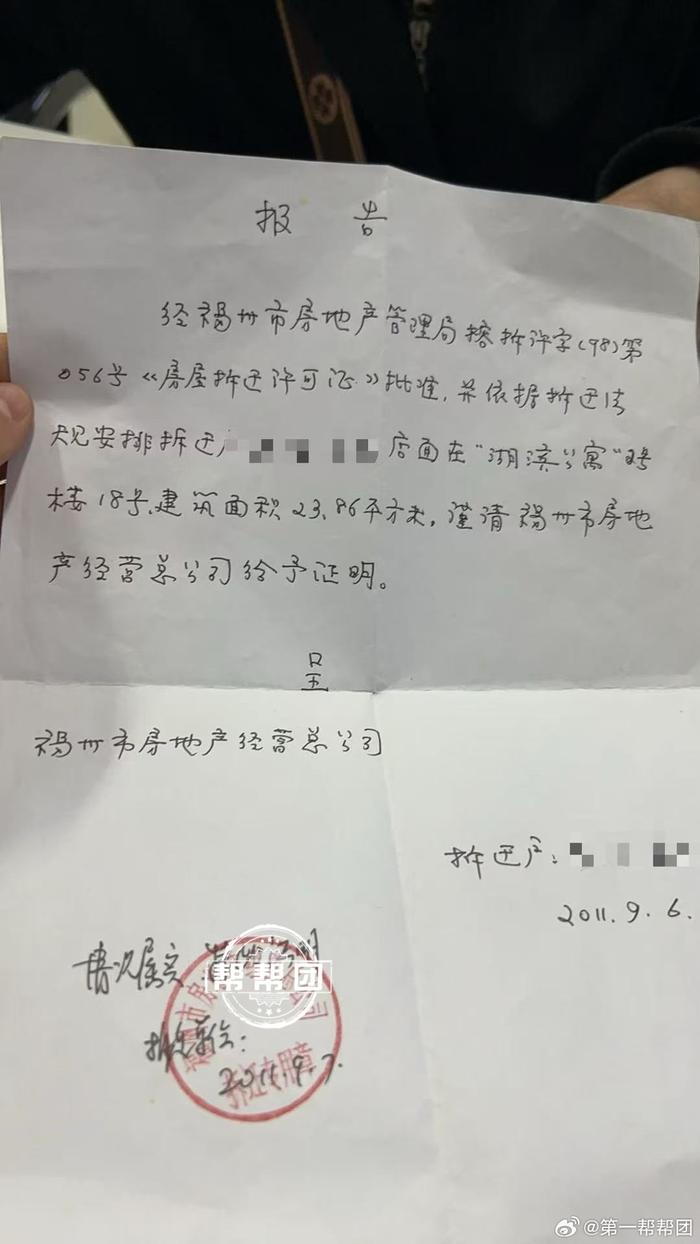 报 告
经福州市房地产管理局榕拆许字(98)第
056号《房屋拆迁许可证》批准,并依据拆迁法
规安排拆迁户 店面在"湖滨公寓"2号
楼18号.建筑面积23.86平方米,谨请福州市房地
产经营总公司给予证明。
呈
福州市房地产经营总公司
拆迁户:
2011.9.6.
情况属实
拆迁单位:
2011.9.7.
拆迁专用章
帮帮团
@第一帮帮团